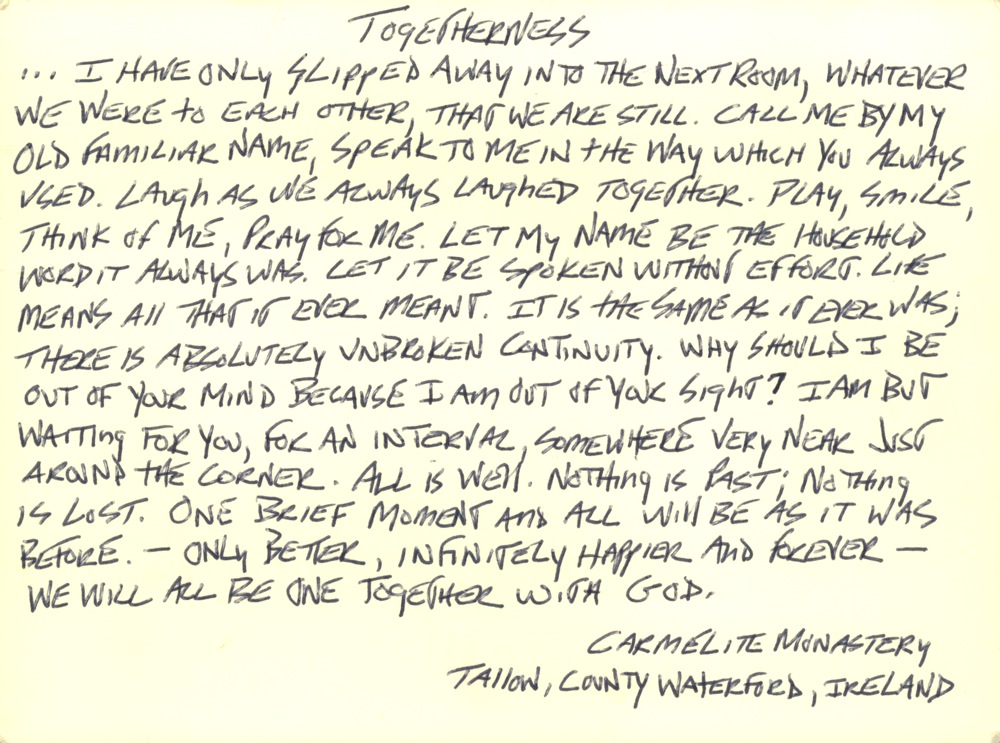 TOGETHERNESS
... I HAVE ONLY SLIPPED AWAY INTO THE NEXT ROOM, WHATEVER
WE WERE to EACH OTHER, THAT WE ARE STILL. CALL ME BY MY
OLD FAMILIAR NAME, SPEAK TO ME IN tHE WAY WHICH YOU ALWAYS
USED. LAUgh AS WE ALWAYS LAUgHED TOGETHER. PLAY, SMILE,
THINK OF ME, PRAY FOR ME. LET MY NAME BE THE HOUSEHOLD
WORD IT ALWAYS WAS. LET IT BE SPOKEN WITHOUT EFFORT. LIFE
MEANS All THAT IT EVER MEANT. IT IS tHE SAME AS IT EVER WAS;
THERE IS ABSOLUTELY UNBROKEN CONTINUITY. WHY SHOULD I BE
OUT OF YOUR MIND BECAUSE I AM OUT OF YOUR SigHT? I AM BUT
WAITINg FOR YOU, FOR AN INTERVAL, SOMEWHERE VERY NEAR JUST
AROUND tHE CORNER. ALL IS WEll. NOTHINg IS PAST; NOTHINg
IS LOST. ONE BRIEF MOMENT AND ALL WIll BE AS IT WAS
BEFORE. — ONLY BETTER, INFINITELY HAPPIER AND FOREVER —
WE WILL ALL BE ONE TOGETHER WITH GOD.
CARMELITE MONASTERY
TAllOW, COUNTY WATERFORD, IRELAND